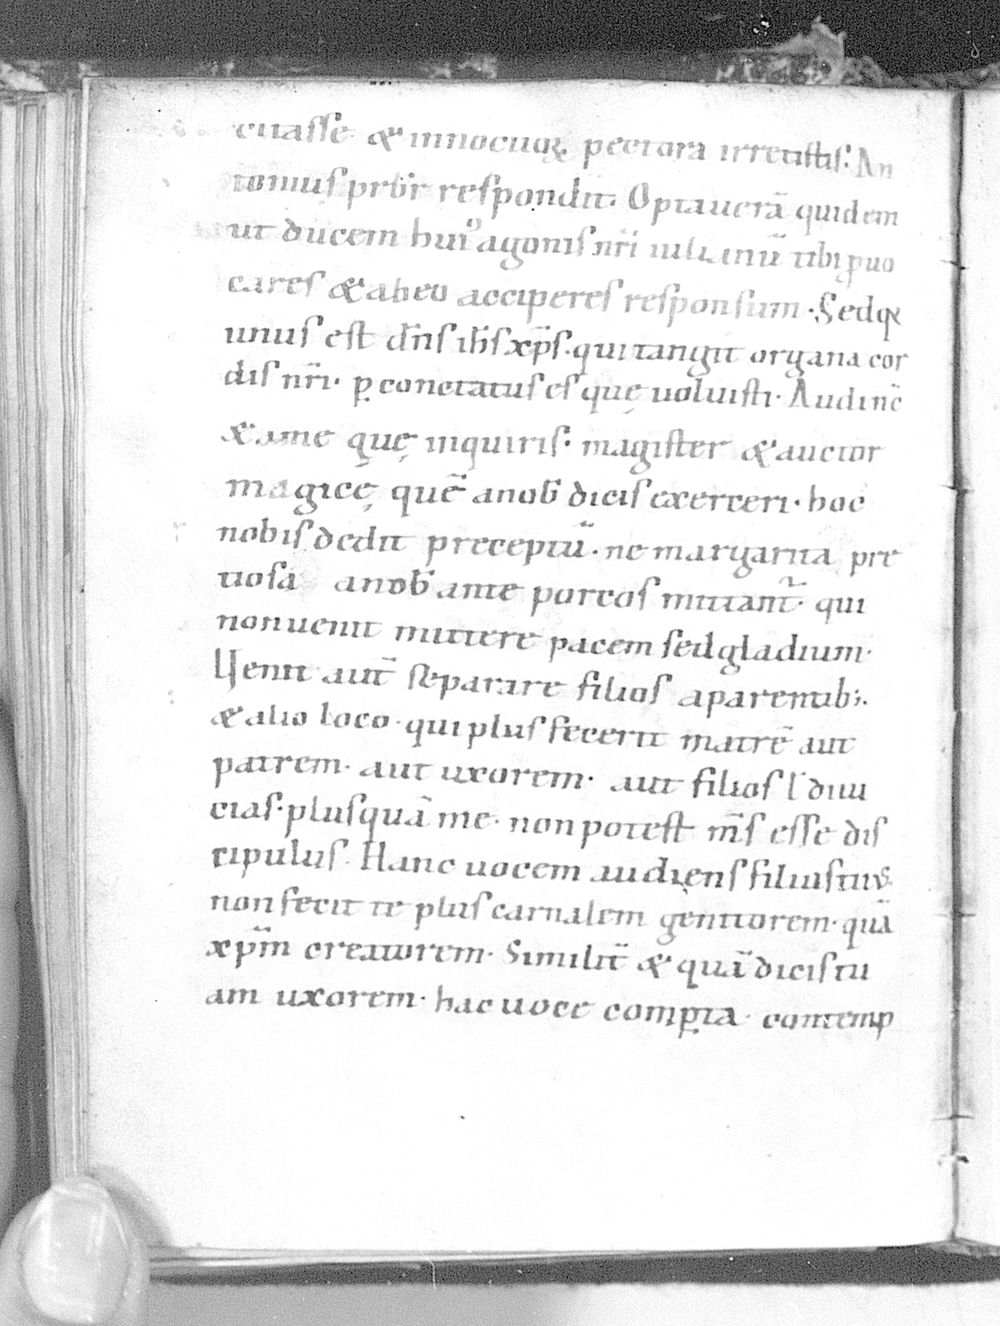 cuasse & innocuoꝝ pectora irretistis. An
tonius prb̄r respondit. Optauerā quidem
ut ducem huiꝰ agonis nr̄i iulianū tibi ꝓuo
cares & ab eo acciperes responsum. Sed q̄
unus est dn̄s ih̄s xp̄s. qui tangit organa cor
dis nr̄i. ꝑconctatus es quę uoluisti. Audi nc̄
& a me quę inquiris. magister & auctor
magicę, quē a nob̄ dicis exerceri. hoc
nobis dedit preceptū. ne margarita pre
tiosa a nob̄ ante porcos mittant̄. qui
non uenit mittere pacem sed gladium.
Venit aut̄ separare filios a parentib;.
& alio loco. qui plus fecerit matrē aut
patrem. aut uxorem. aut filios l̄ diui
cias. plus quā me. non potest m̄s esse dis
cipulus. Hanc uocem audiens filius tuus
non fecit te plus carnalem genitorem. quā
xp̄m creatorem. Similit̄ & quā dicis tu
am uxorem. hac uoce comꝑta. contemp